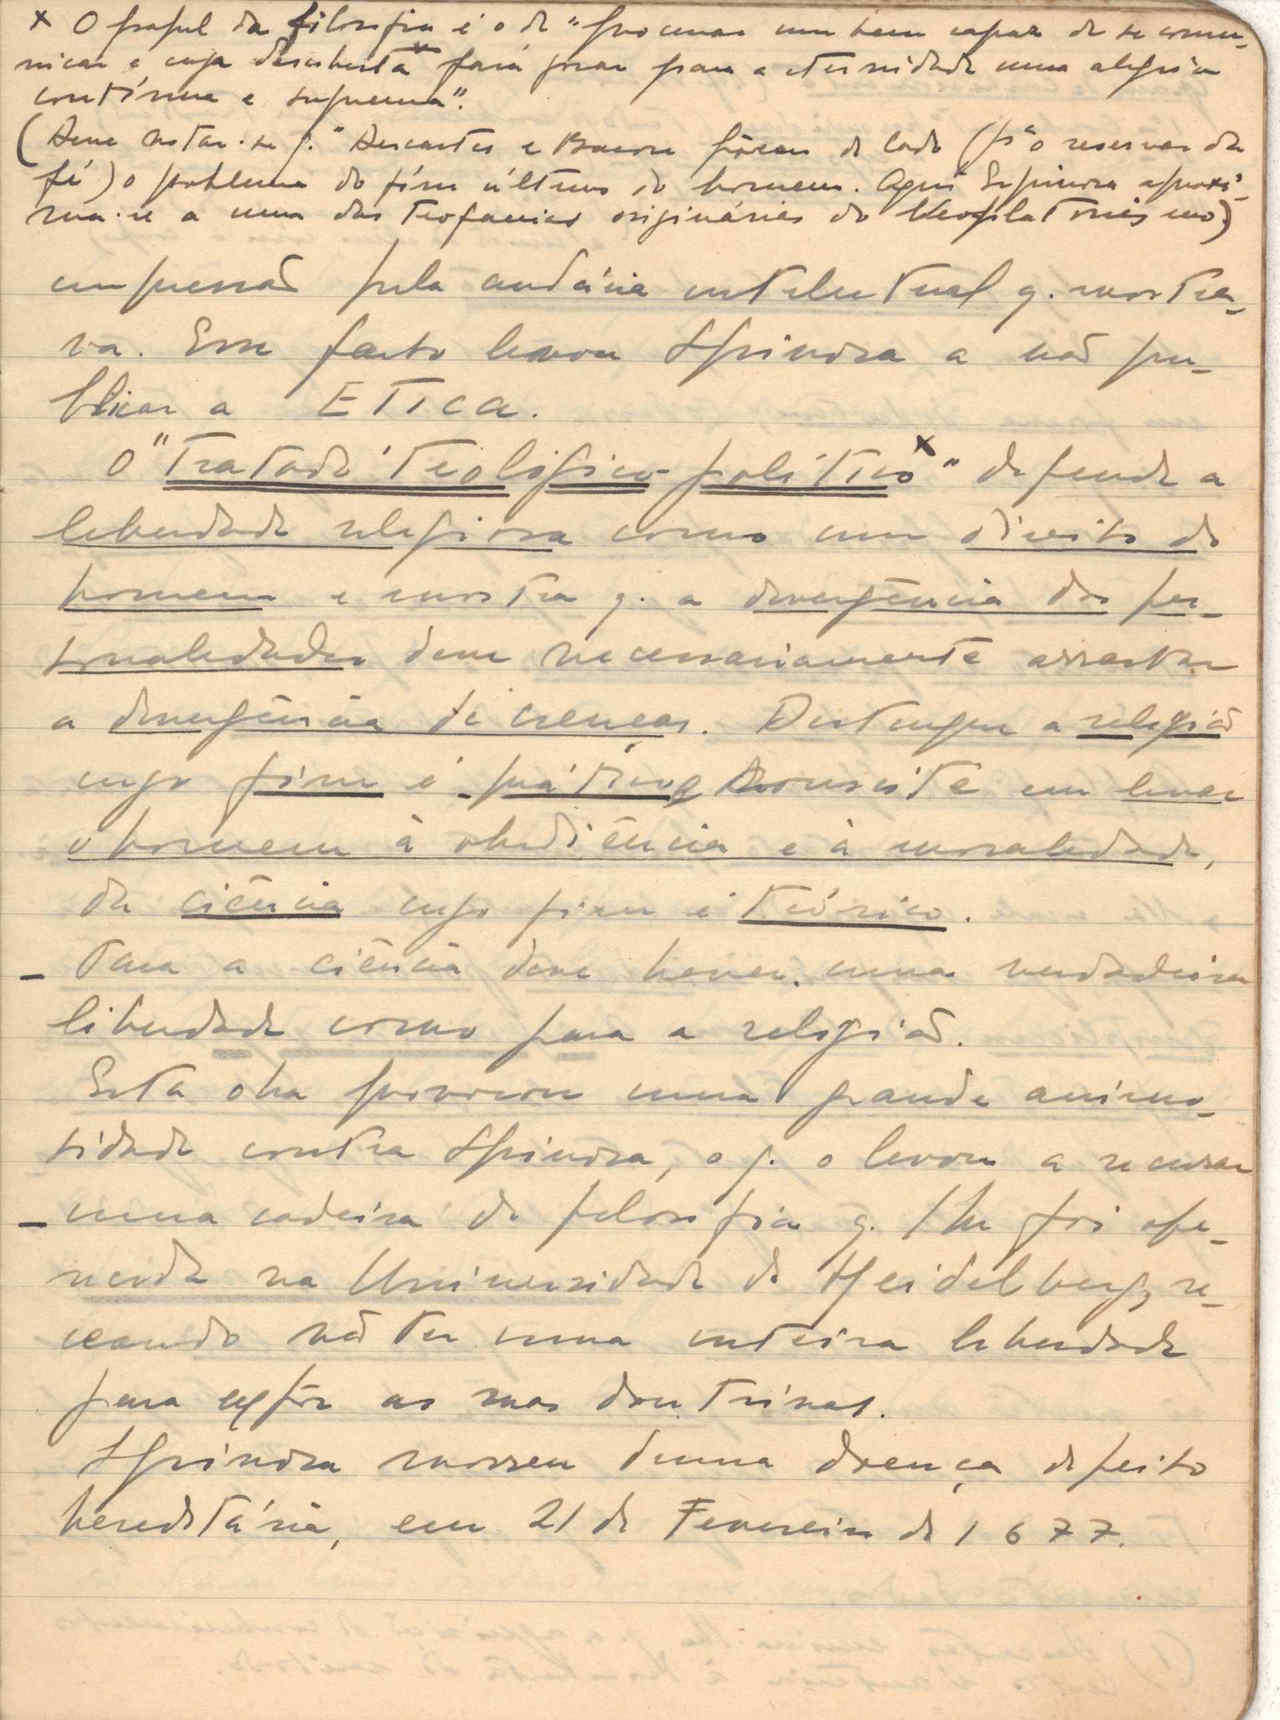 x O papel da filosofia é o de "procurar um bem capaz de se comu-
nicar e cuja descoberta" fará gozar para a eternidade uma alegria
contínua e suprema".
(Deve notar-se q. Descartes e Bacon põem de lado (p.ª o reservar da
fé) o problema do fim último do homem. Aqui Espinosa aproxi-
ma-se a uma das teofanias originárias do Neoplatonismo)
impressão pela audácia intelectual q. mostra-
va. Esse facto levou Spinosa a não pu-
blicar a ETICA.
O "Tratado Teológico-político x" defende a
liberdade religiosa como um direito do
homem e mostra q. a divergência das per-
sonalidades deve necessariamente arrastar
a divergência de crenças. Distingue a religião
cujo fim é prático e consiste em levar
o homem à obediência e à moralidade,
da ciência cujo fim é teórico.
- Para a ciência deve haver uma verdadeira
liberdade como para a religião.
Esta obra provocou uma grande animo-
sidade contra Spinosa, o q. o levou a recusar
- uma cadeira de filosofia q. lhe foi ofe-
recida na Universidade de Heidelberg, re-
ceando não ter uma inteira liberdade
para expôr as suas doutrinas.
Spinosa morreu duma doença de peito
hereditária, em 21 de Fevereiro de 1677.